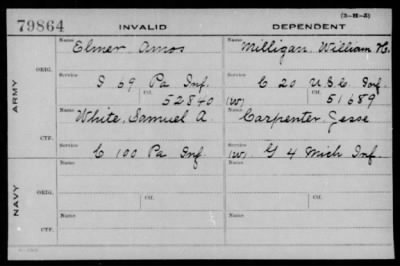 (3-H-3)
79864 INVALID DEPENDENT
ARMY
ORIG.
Name Elmer, Amos
Name Milligan, William H.
Service I 69 Pa Inf.
Service C 20 U.S.C. Inf.
Ctf. 52840
(W) Ctf. 51689
CTF.
Name White, Samuel A.
Name Carpenter, Jesse
Service C 100 Pa Inf.
(W) Service G 4 Mich Inf.
NAVY
ORIG.
Name
Name
Service Ctf.
Service Ctf.
CTF.
Name
Name
Service
Service